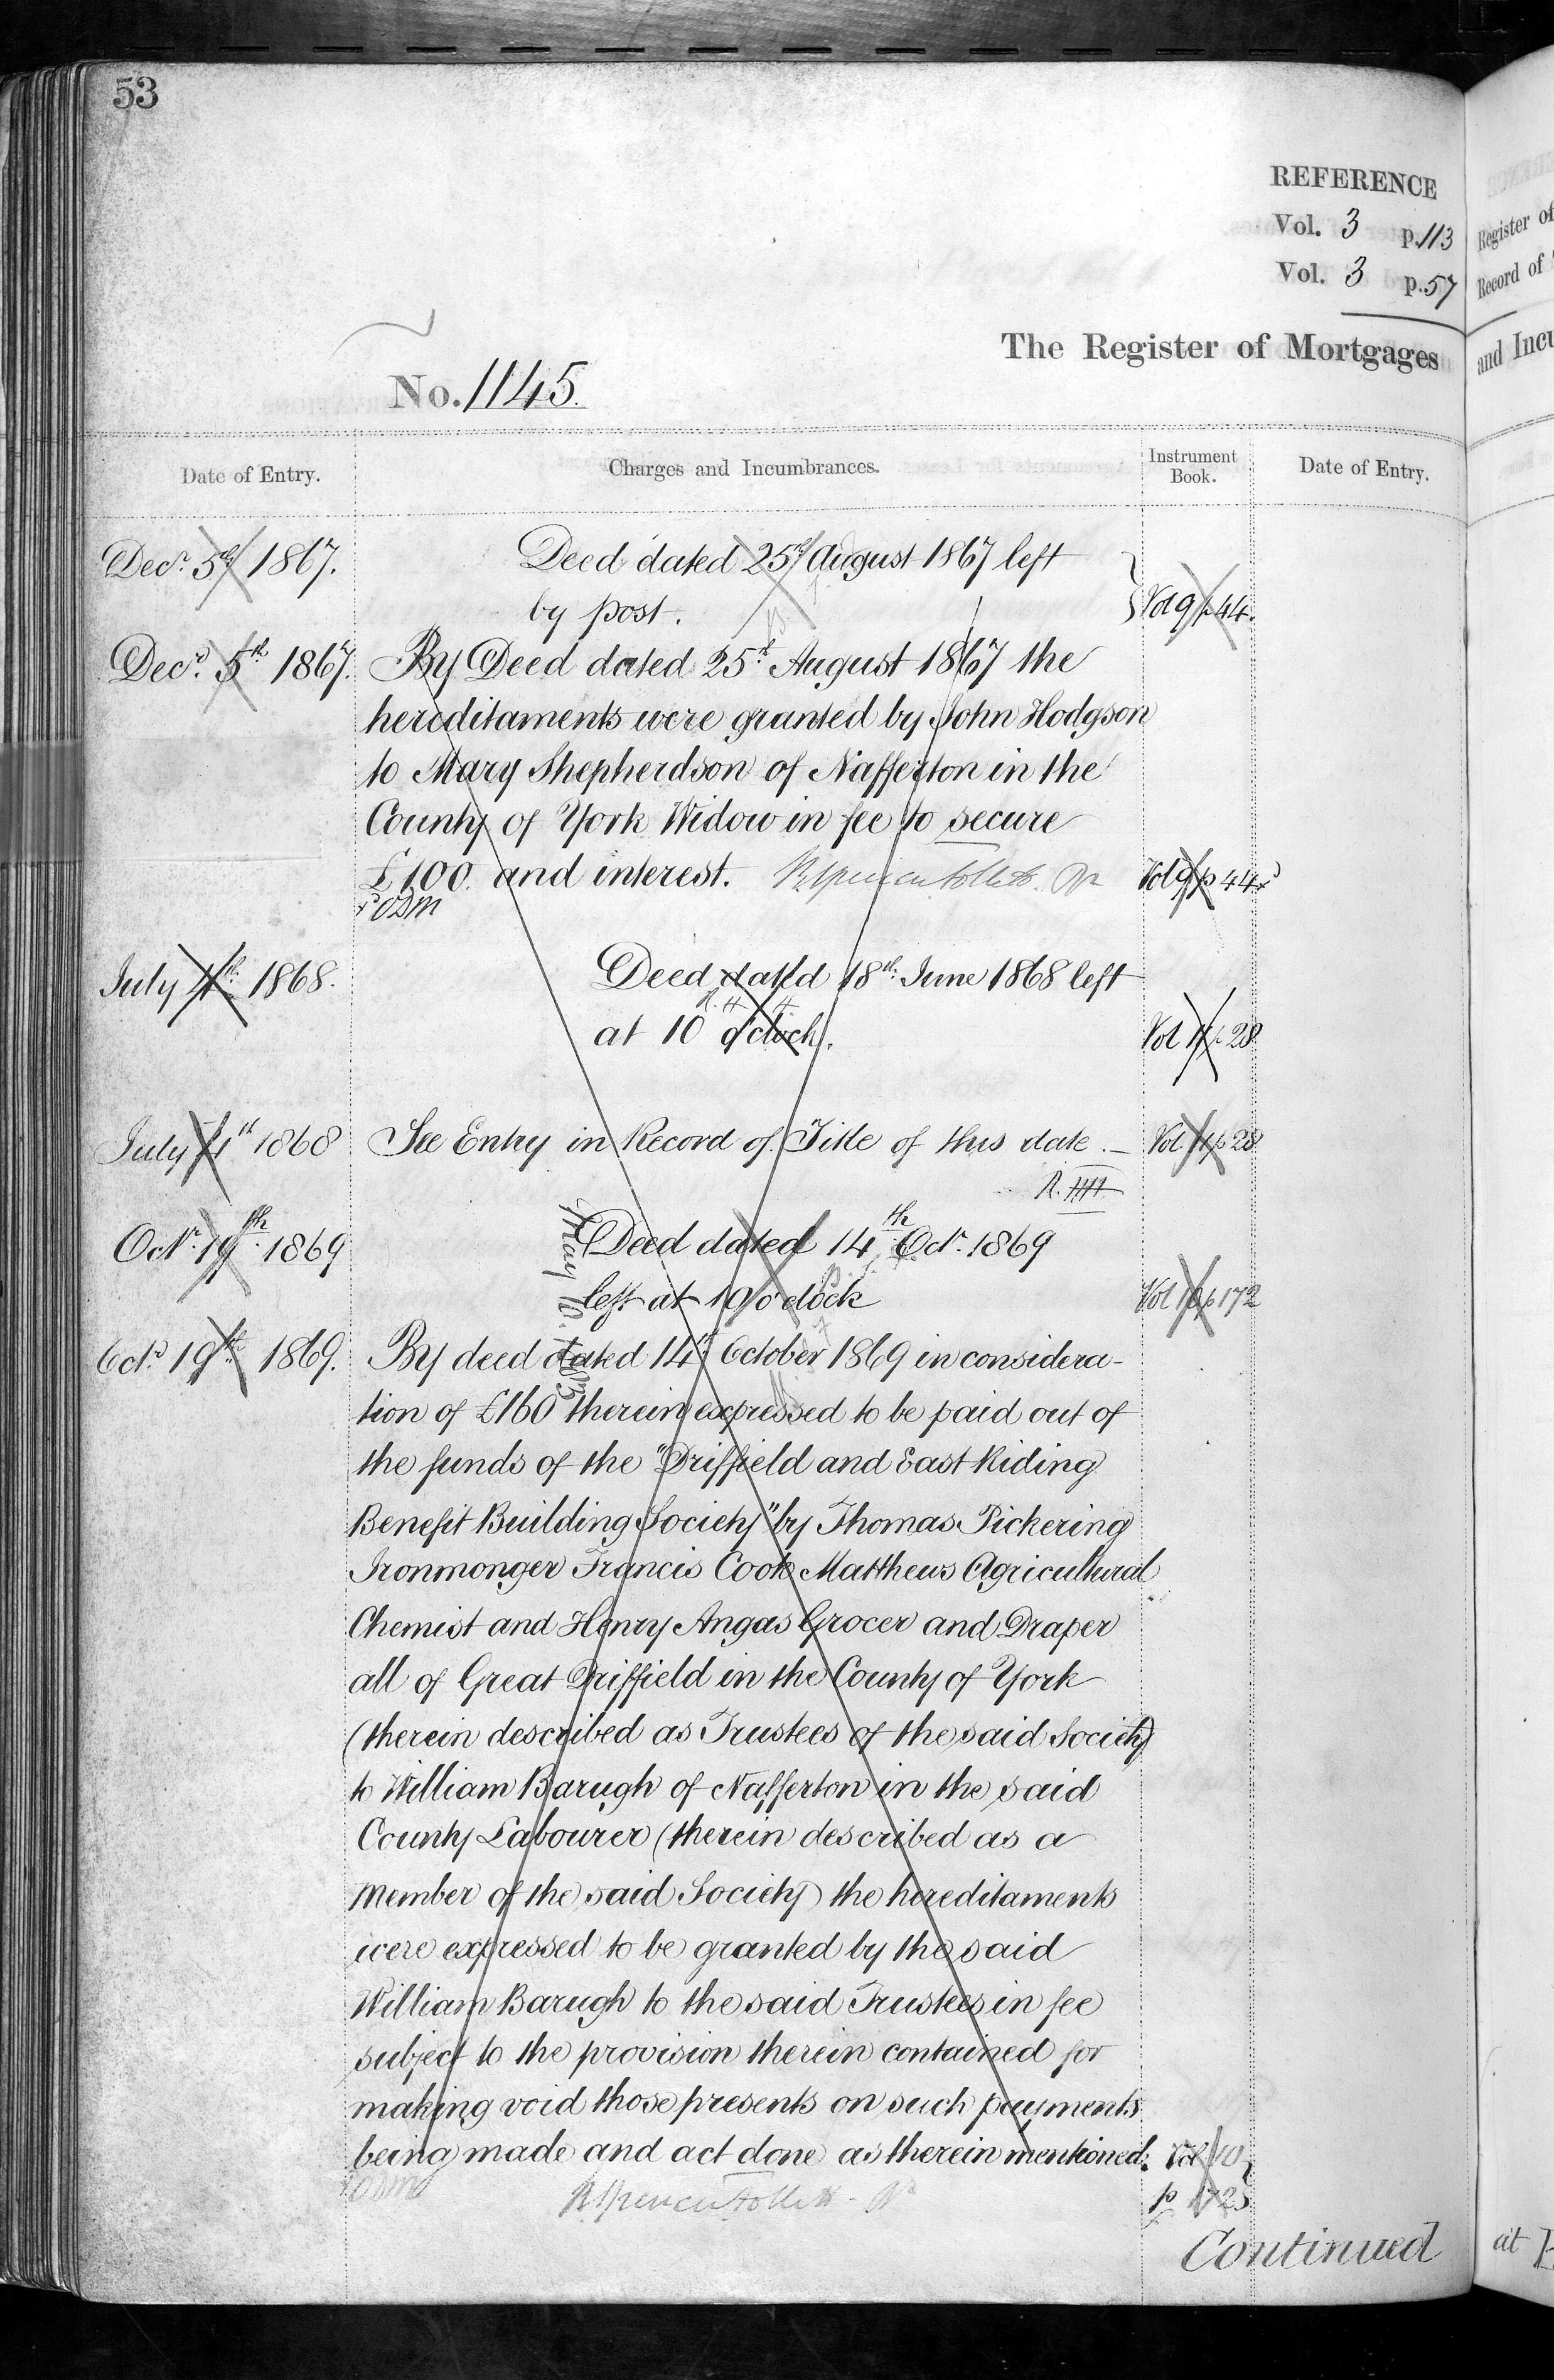 53
REFERENCE
Vol. 3 p. 113
Vol. 3 p. 57
Register of
Record of
The Register of Mortgages
and Incu
No. 1145.
Date of Entry.
Charges and Incumbrances.
Instrument Book.
Date of Entry.
Decr. 5th 1867.
Deed dated 25th August 1867 left
by post.
Vol 9 p 44.
Decr. 5th 1867.
By Deed dated 25th August 1867 the
hereditaments were granted by John Hodgson
to Mary Shepherdson of Nafferton in the
County of York Widow in fee to secure
£100 and interest.
Vol 9 p 44
July 4th 1868.
Deed dated 18th June 1868 left
at 10 o'clock.
Vol 4 p 28
July 4th 1868
See Entry in Record of Title of this date.—
Vol 4 p 28
Octr. 19th 1869
Deed dated 14th Octr. 1869
left at 10 o'clock
Vol 10 p 172
Octr. 19th 1869.
By deed dated 14th October 1869 in considera-
tion of £160 therein expressed to be paid out of
the funds of the "Driffield and East Riding
Benefit Building Society" by Thomas Pickering
Ironmonger Francis Cook Matthews Agricultural
Chemist and Henry Angas Grocer and Draper
all of Great Driffield in the County of York
(therein described as Trustees of the said Society)
to William Barugh of Nafferton in the said
County Labourer (therein described as a
Member of the said Society) the hereditaments
were expressed to be granted by the said
William Barugh to the said Trustees in fee
subject to the provision therein contained for
making void those presents on such payments
being made and act done as therein mentioned.
Vol 10
p 172
Continued
at